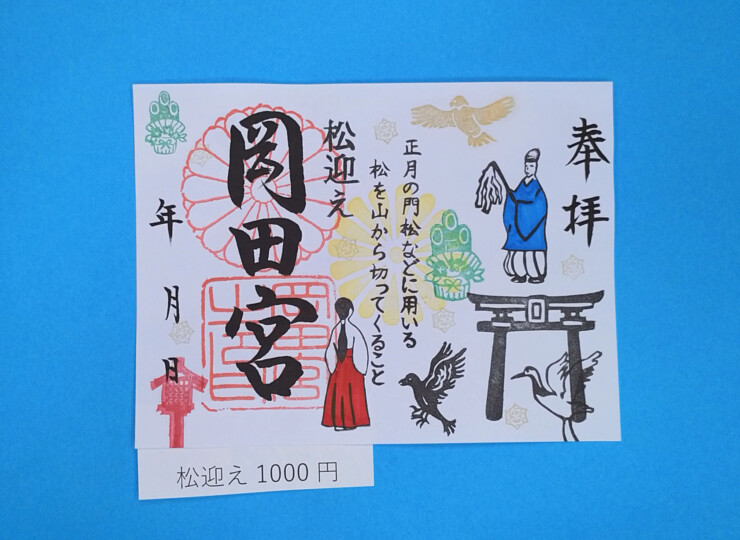 奉拝
正月の門松などに用いる
松を山から切ってくること
松迎え
岡田宮
年 月 日
松迎え 1000 円